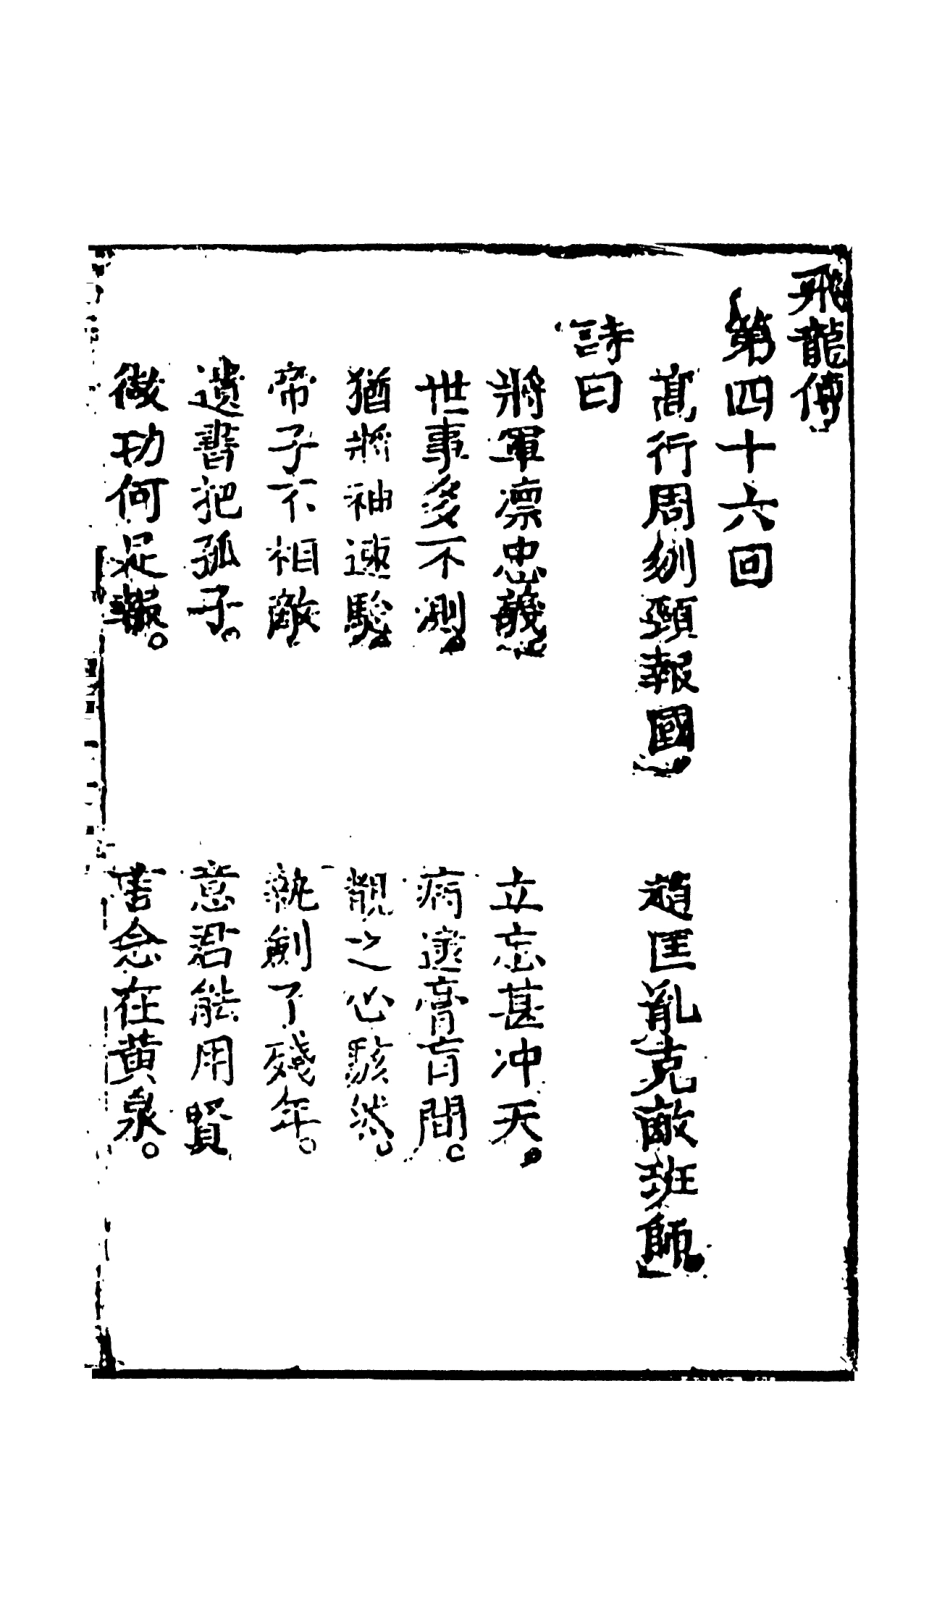 飛龍傳
第四十六回
高行周刎頸報國　趙匡胤克敵班師
詩曰
將軍凛忠義。　立志甚冲天。
世事多不測。　病遂膏肓間。
猶將神速駿。　覩之心駭然。
帝子不相敵　執劍了殘年。
遺書把孤子。　意君能用賢
微功何足報。　書念在黄泉。